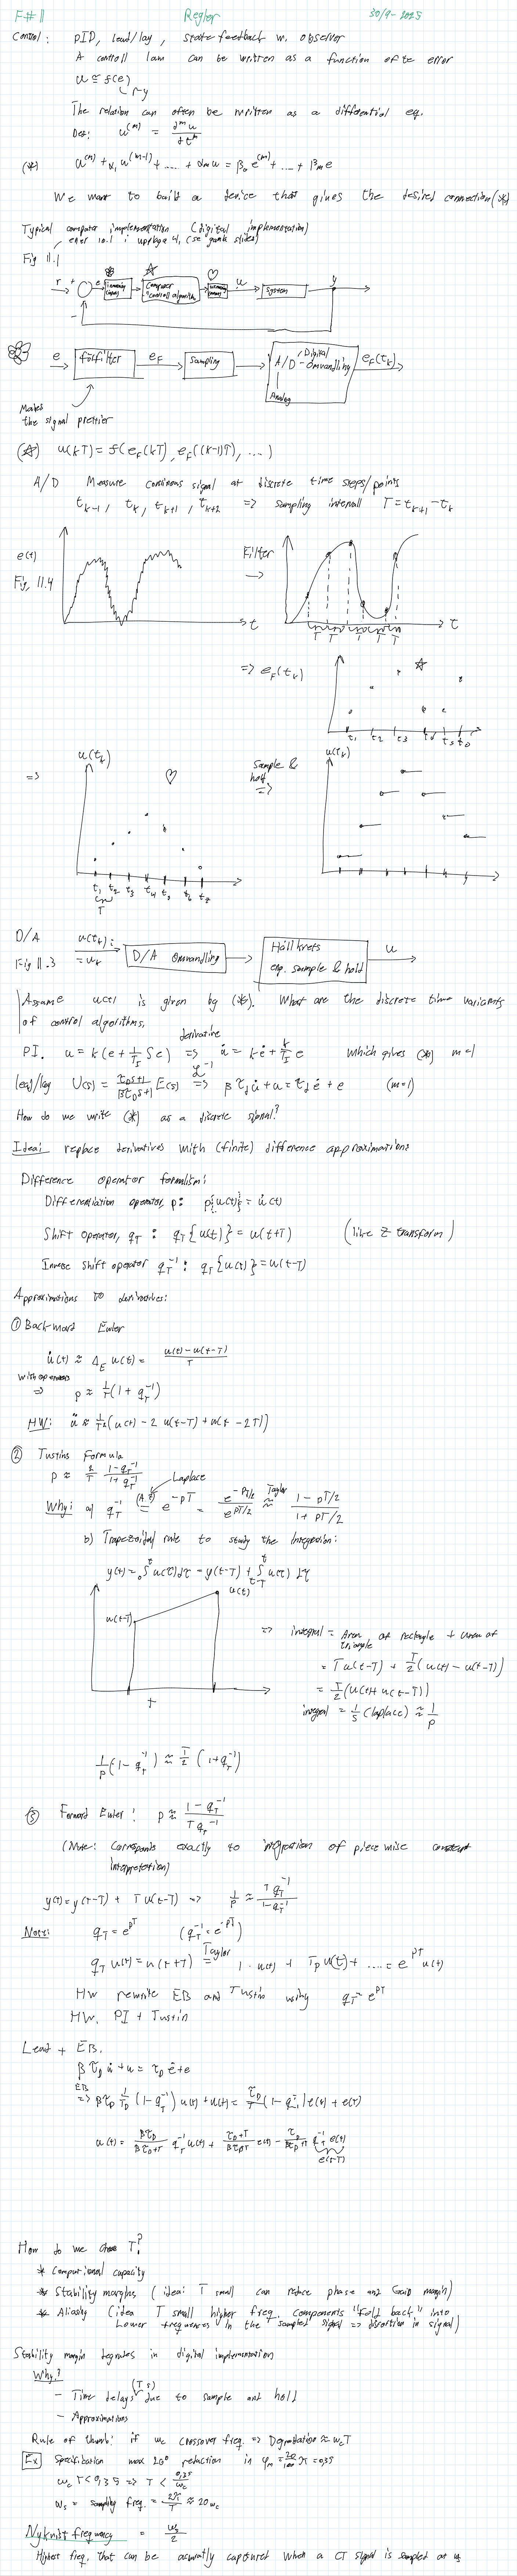 F#11 Regler 30/9-2025
Control: PID, lead/lag, state feedback w. observer
A controll law can be written as a function of te error
u = f(e)
r-y
The relation can often be written as a differential eq.
Def: u^(m) = d^m u / dt^m
(*) u^(m) + α₁ u^(m-1) + .... + αm u = β₀ e^(m) + ... + βm e
We want to build a device that gives the desired connection (*)
Typical computer implementation (digital implementation)
Fig 11.1
r + e Computer control algorithm u System y
-
e förfilter e_F Sampling A/D - Omvandling e_F(t_k)
Digital
Analog
Makes
the signal prettier
(☆) u(kT) = f(e_F(kT), e_F((k-1)T), ...)
A/D Measure continous signal at discrete time steps/points
t_k-1, t_k, t_k+1, t_k+2 => sampling intervall T = t_k+1 - t_k
e(t) Filter
Fig 11.4 →
t t
T T T T T
=> e_F(t_k) ☆
t₁ t₂ t₃ t₄ t₅ t₆
=> u(t_k) ♡ Sample & hold => u(t_k)
t₁ t₂ t₃ t₄ t₅ t₆ t₇
T
D/A u(t_k) := u_k D/A Omvandling Hållkrets exp. sample & hold u
Fig 11.3
Assume u(t) is given by (*). What are the discrete time variants
of control algorithms.
derivative
PI. u = k(e + 1/T_I ∫e) => u̇ = kė + k/T_I e which gives (*) m=1
lead/lag U(s) = (τ_D s+1)/(βτ_D s+1) E(s) L^-1 => β τ_d u̇ + u = τ_d ė + e (m=1)
How do we write (*) as a discrete signal?
Idea: replace derivatives with (finite) difference approximations
Difference operator formalism:
Differentiation operator, p: p{u(t)} = u̇(t)
Shift operator, q_T : q_T {u(t)} = u(t+T) (like Z transform)
Inverse shift operator q_T^-1 : q_T {u(t)} = u(t-T)
Approximations to derivatives:
① Backward Euler
u̇(t) ≈ Δ_E u(t) = (u(t) - u(t-T))/T
with operators
=> p ≈ 1/T (1 + q_T^-1)
HW: ü ≈ 1/T² (u(t) - 2 u(t-T) + u(t-2T))
② Tustins Formula
p ≈ 2/T (1-q_T^-1)/(1+q_T^-1)
Laplace
Why: a) q_T^-1 = e^-pT = e^(-pT/2)/e^(pT/2) Taylor ≈ (1 - pT/2)/(1 + pT/2)
b) Trapezoidal rule to study the integration:
y(t) = ₀∫^t u(τ)dτ = y(t-T) + ∫_t-T^t u(τ) dτ
u(t)
u(t-T)
T
=> integral = Area of rectangle + area of triangle
= T u(t-T) + T/2 (u(t) - u(t-T))
= T/2 (u(t) + u(t-T))
integral = 1/s (laplace) ≈ 1/p
1/p (1 - q_T^-1) ≈ T/2 (1 + q_T^-1)
③ Forward Euler: p ≈ (1 - q_T^-1)/(T q_T^-1)
(Note: Corresponds exactly to integration of piece wise constant
interpretation)
y(t) = y(t-T) + T u(t-T) => 1/p ≈ T q_T^-1/(1-q_T^-1)
Note: q_T = e^pT (q_T^-1 = e^-pT)
q_T u(t) = u(t+T) Taylor = 1·u(t) + Tp u(t) + .... = e^pT u(t)
HW rewrite EB and Tustin using q_T = e^pT
HW. PI + Tustin
Lead + EB.
β τ_D u̇ + u = τ_D ė + e
EB
=> βτ_D 1/T_D (1 - q_T^-1) u(t) + u(t) = τ_D/T (1 - q_T^-1) e(t) + e(t)
u(t) = βτ_D/(βτ_D+T) q_T^-1 u(t) + (τ_D+T)/(βτ_D+T) e(t) - τ_D/(βτ_D+T) q_T^-1 e(t)
e(t-T)
How do we chose T?
* Computional capacity
* Stability margins (idea: T small can reduce phase and Gain margin)
* Aliasing (idea T small higher freq. components "fold back" into
Lower frequencies in the sampled signal => distortion in signal)
Stability margin degrades in digital implementation
Why?
- Time delays (T s) due to sample and hold
- Approximations
Rule of thumb: if ω_c crossover freq. => Degradation ≈ ω_c T
Ex Specification max 20° reduction in φ_m = 20/180 π = 0,35
ω_c T < 0,35 => T < 0,35/ω_c
ω_s = sampling freq. = 2π/T ≈ 20 ω_c
Nyknist frequency = ω_s/2
Highest freq. that can be acurratly captured when a CT signal is sampled at ω_s